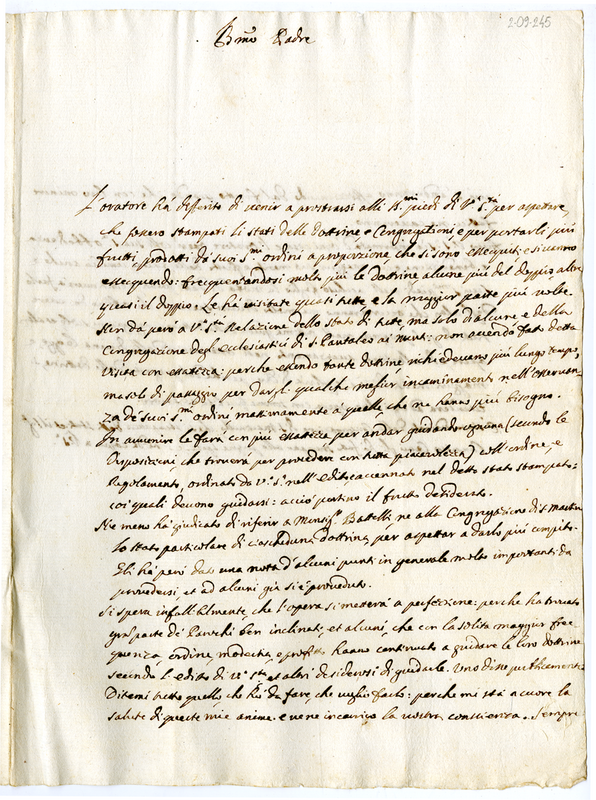 2.09.245
B.mo Padre
L'oratore hà differito di venir a prostrarsi alli S.mi piedi di V.a S.tà per aspettare,
che fossero stampati li stati delle dottrine e Congregationi, e per portarli più
frutti, prodotti da suoi S.mi ordini a proporzione che si sono esseguiti, e si vanno
essequendo: frequentandosi molto più le dottrine, alcune più del doppio, altre
quasi il doppio. Le hà visitate quasi tutte, e la maggior parte più volte.
Non dà però a V.a S.tà Relazione dello stato di tutte, ma solo di alcune e della
Congregazione degl'Ecclesiastici di S. Pantaleo ai Monti: non avendo fatto detta
visita con esattezza: perche essendo tante dottrine, richiedevano più lungo tempo,
ma solo di passaggio per dargli qualche miglior incaminamento nell'osservan-
za de' suoi S.mi ordini, massimamente à quelle, che ne hanno più bisogno.
In avvenire le farà con più esattezza per andar guidando ognuna (secondo le
disposizioni che troverà per procedere con tutta piacevolezza) coll'ordine, e
Regolamento, ordinato da V.a S.tà nell'editto accennato nel detto stato stampato:
coi quali devono guidarsi: acciò portino il frutto desiderato.
Ne meno hà giudicato di riferir a Monsig.r Battelli, ne alla Congregazione di S. Martino
lo stato particolare di ciascheduna dottrina, per aspettar a darlo più compito.
Gli hà però dato una nota d'alcuni punti in generale molto importanti da
provedersi, et ad alcuni già si è proveduto.
Si spera infallibilmente, che l'opera si metterà a perfezione: perche hà trovato
gran parte de' Parochi ben inclinati, et alcuni, che con la solita maggior fre
quenza, ordine, modestia, e profitto hanno continuato a guidare le loro dottrine
secondo l'editto di V.a S.tà et altri desiderosi di guidarle. Uno disse publicamente:
Ditemi tutto quello, che hò da fare, che voglio farlo: perche mi stà a cuore la
salute di queste mie anime. e ve ne incarico la vostra conscienza. Sempre